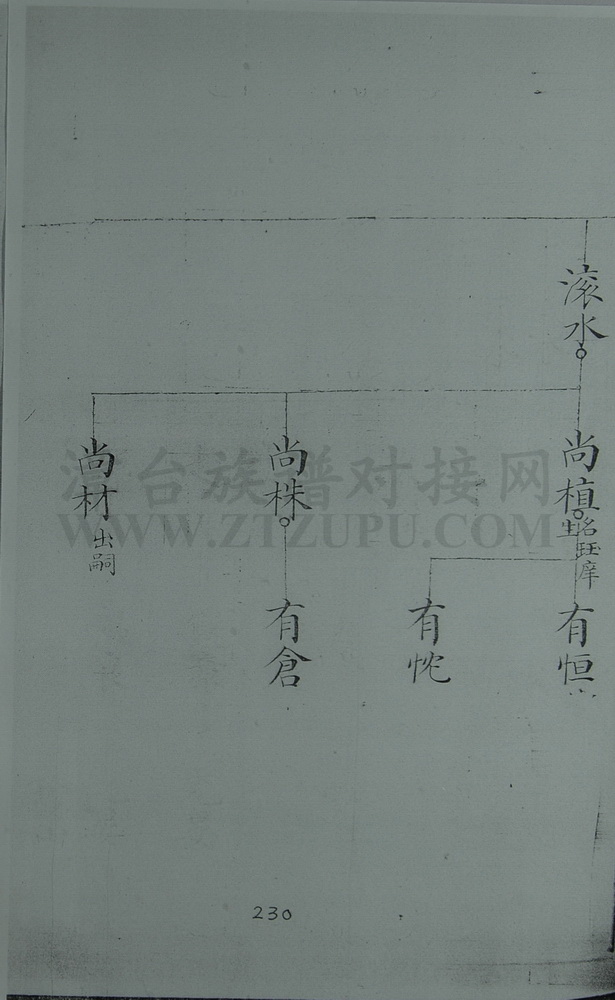 滚水
尚植
名玨庠
生
尚株
尚材
出嗣
有恒
有忱
有倉
台族譜对接网
WWW.ZTZUPU.COM
230